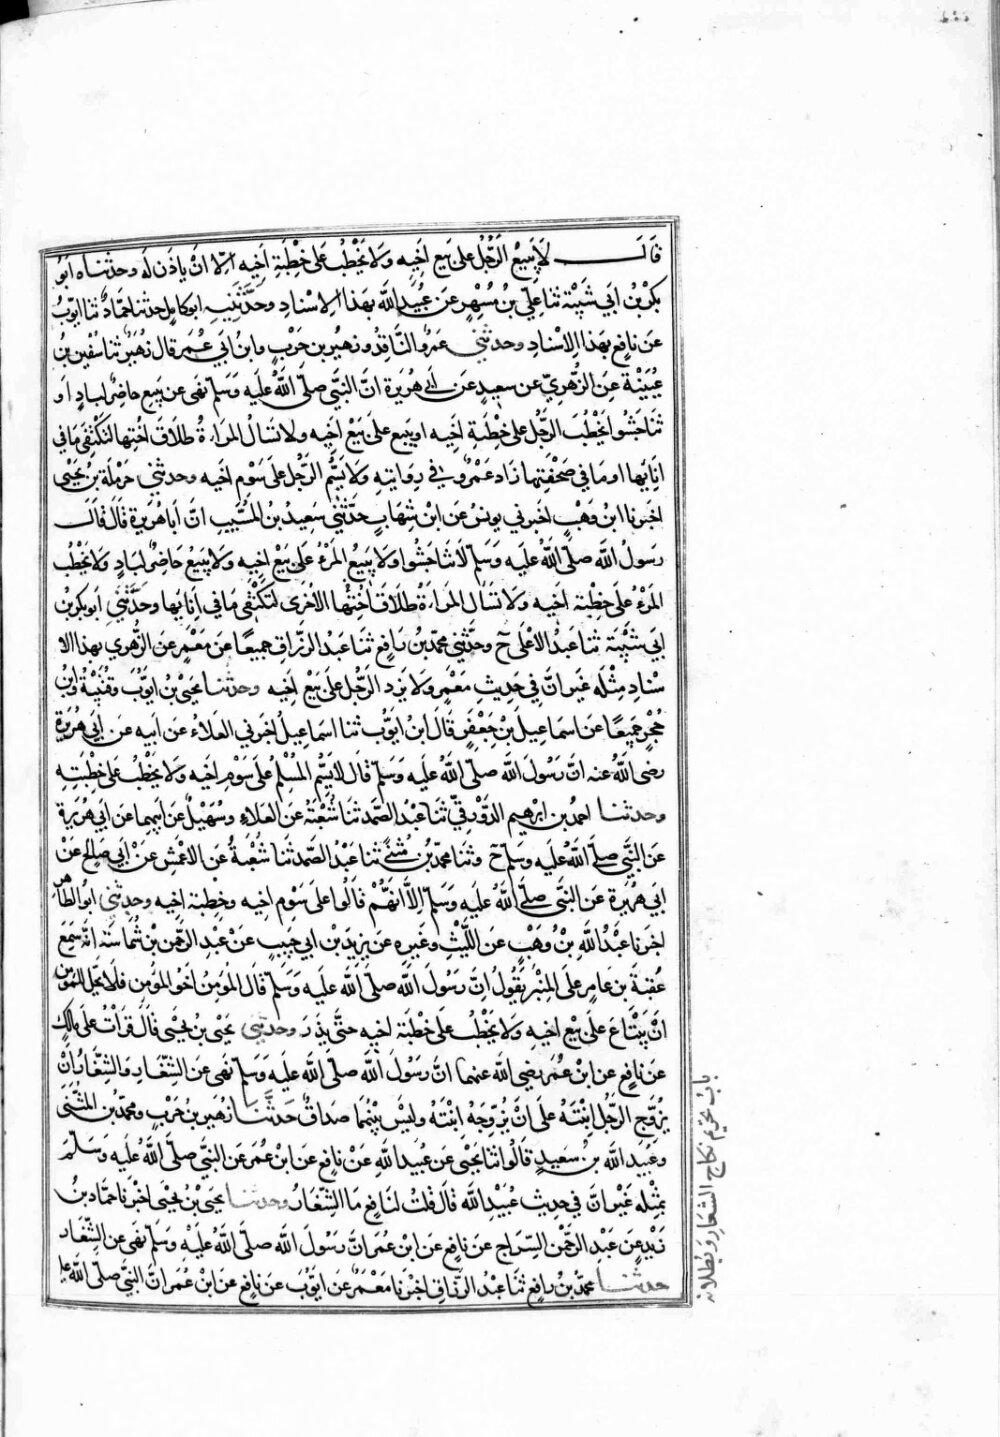 قَالَ لَا يَبِيعُ الرَّجُلُ عَلَى بَيْعِ اَخِيهِ وَلَا يَخْطُبُ عَلَى خِطْبَةِ اَخِيهِ اِلَّا اَنْ يَاذَنَ لَه وحدثناه اَبُو
بَكْرِ بْنُ اَبِي شَيْبَةَ ثنا عَلِيُّ بْنُ مُسْهِرٍ عَنْ عُبَيْدِ اللَّه بِهَذَا الاِسْنَادِ وَحَدَّثَنِيهِ ابو كامل حدثنا حَمَّادٌ ثنا ايوبُ
عَنْ نَافِعٍ بِهَذَا الاِسْنَادِ وحدثني عَمْرٌو النَّاقِدُ وزهير بن حَرْبٍ وَابنُ اَبِي عُمَر قال زُهَيرٌ ثنا سُفْين بْنُ
عُيَيْنَةَ عَنِ الزُّهْرِيِّ عَنْ سعيدٍ عَنْ ابي هُرَيرَةَ انَّ النَّبِيَّ صَلَّى اللَّهُ عَلَيهِ وَسَلَّم نَهَى عَن يَبِيعَ حاضِرٌ لبادٍ اَو
يتناجَشُوا اَو يَخْطُبَ الرَّجُلُ عَلَى خِطْبَةِ اَخِيهِ او يَبيع على بَيْعِ اَخِيه ولا تسَال المَراَةُ طَلَاقَ اُخْتِهَا لتَكْتَفِيَ مَا في
اِنَائِهَا او مَا فِي صَحْفَتِهَا زَاد عَمْرٌو في رِوَايَتِهِ وَلَا يَسُمِ الرَّجُلُ عَلَى سَوْمِ اخيه وحدثني حَرْمَلَة بْنُ يَحْيَى
اَخبرنا ابْن وَهْبٍ اَخْبَرني يونسُ عَن ابْن شِهَابٍ حَدَّثَنِي سَعِيدُ بْنُ المُسَيِّبِ انَّ اَبَا هُرَيرَةَ قَالَ قَالَ
رسولُ اللَّه صَلَّى اللَّهُ عَلَيه وَسَلَّم لَا تنَاجَشُوا وَلَا يَبِيعُ المَرْءُ عَلَى بَيْعِ اَخِيهِ وَلَا يَبِيعُ حَاضِرٌ لبَادٍ ولا يَخْطُب
المَرْءُ عَلَى خِطْبَة اَخِيه ولا تسَال المَراَةُ طَلَاقَ اُخْتِهَا الاُخْرَى لتَكْتَفِيَ مَا في اِنَائِهَا وحَدَّثَنِي ابو بكر بْنُ
اَبِي شَيْبَةَ ثنا عَبْدُ الاَعْلَى ح وحَدَّثَنِي محمد بن رَافِعٍ ثنَا عَبْدُ الرَّزَّاقِ جَمِيعًا عَنْ مَعْمَرٍ عَنِ الزُّهْرِي بهذا الا
سْنَادِ مِثْلَهُ غَيرَ انَّ فِي حَدِيثِ مَعْمَرٍ وَلَا يَزِد الرَّجُلُ عَلَى بَيْعِ اَخِيهِ وحدثنا يَحْيَى بْنُ ايوبَ وقُتَيْبَةُ وَابْنُ
حُجْرٍ جَمِيعًا عَنْ اسماعيل بْن جَعْفَرٍ قَالَ ابْنُ ايوبَ ثنا اسماعيل اَخبرني العَلَاءُ عَنْ اَبيه عَنْ اَبِي هُرَيرَةَ
رضى اللَّهُ عنه انَّ رَسُولَ اللَّه صَلَّى اللَّهُ عَلَيه وَسَلَّم قَال لَا يَسُمِ المُسْلِمُ عَلَى سَوْمِ اَخِيه وَلَا يَخْطُب على خِطْبَتِهِ
وحدثنا احمد بن ابرهيم الدَّوْرَقِيُّ ثنا عَبْدُ الصَّمَدِ ثنا شُعْبَةُ عَنِ العَلَاءِ وَسُهَيْلٍ عَنْ اَبِيهِمَا عَنْ اَبي هريرة
عَنِ النَّبِيِّ صَلَّى اللَّهُ عَلَيهِ وَسَلَّم ح وثنا محمد بْنُ مُثَنًّى ثنا عَبْدُ الصَّمَدِ ثنَا شُعْبَةُ عَنِ الاَعْمَشِ عَنْ اَبِي صَالِحٍ عَنْ
اَبِي هُرَيرَةَ عَنِ النَّبِيِّ صَلَّى اللَّهُ عَلَيهِ وَسَلَّم اِلَّا اَنَّهُمْ قَالُوا عَلَى سَوْمِ اَخيه وخِطْبَة اَخيه وحدثني ابو الطَّاهر
اخبرنا عَبْدُ اللَّه بْنُ وَهْبٍ عَنِ اللَّيْثِ وغَيرِهِ عَنْ يَزِيدَ بْن اَبِي حَبِيبٍ عَنْ عَبْدِ الرَّحْمن بْن شُمَاسَةَ انَّه سَمِعَ
عُقْبَةَ بن عَامِرٍ عَلَى المِنْبَر يَقُولُ انَّ رَسُولَ اللَّه صَلَّى اللَّهُ عَلَيه وَسَلَّم قَال المُؤمِنُ اَخُو المُؤمِن فَلَا يَحِلُّ للمُؤمِن
اَنْ يَبْتَاعَ عَلَى بَيْعِ اَخِيهِ وَلَا يَخْطُبَ على خِطْبَة اَخِيه حَتَّى يَذَرَ وحدثني يَحْيَى بْنُ يَحْيَى قَالَ قَرَاْتُ عَلَى مَالِكٍ
عَن نافِعٍ عَن ابْنِ عُمَر رضي الله عنهما انَّ رَسُولَ اللَّه صَلَّى اللَّهُ عَلَيه وَسَلَّم نَهَى عَنِ الشِّغَارِ وَالشِّغَارُ اَنْ
يُزَوِّجَ الرَّجُلُ ابْنَتَهُ عَلَى اَنْ يُزَوِّجَهُ ابْنَتَهُ وليسَ بَيْنَهُمَا صَدَاقٌ حَدَّثَنَا زُهَيرُ بن حَرْبٍ ومحمد بْنُ المُثَنَّى
وعُبَيد الله بْنُ سَعِيدٍ قَالُوا ثنا يَحْيَى عَنْ عُبَيْدِ اللَّهِ عَنْ نَافِعٍ عَن ابْن عُمَرَ عَنِ النَّبِيِّ صَلَّى اللَّهُ عَلَيهِ وَسَلَّمَ
بِمِثْلِه غَيْرَ انَّ فِي حَدِيث عُبَيْدِ اللَّه قَالَ قُلتُ لنَافِعٍ مَا الشِّغَارُ وحدثنا يَحيَى بْنُ يَحْيَى اَخْبَرَنا حَمَّادُ بنُ
زَيْدٍ عَنْ عَبْدِ الرَّحْمن السِّرَاجِ عَنْ نَافِعٍ عَن ابْن عُمَر انَّ رَسُولَ اللَّه صَلَّى اللَّهُ عَلَيْهِ وسَلَّم نَهَى عَنِ الشِّغَار
حدثنا محمد بْنُ رَافِعٍ ثنَا عَبْدُ الرَّزَّاقِ اَخْبَرَنَا مَعْمَرٌ عَن اَيُّوبَ عَن نَافِعٍ عَن ابْن عُمَر انَّ النَّبِيَّ صَلَّى اللَّهُ علي
باب تحريم نكاح الشغار وبطلانه